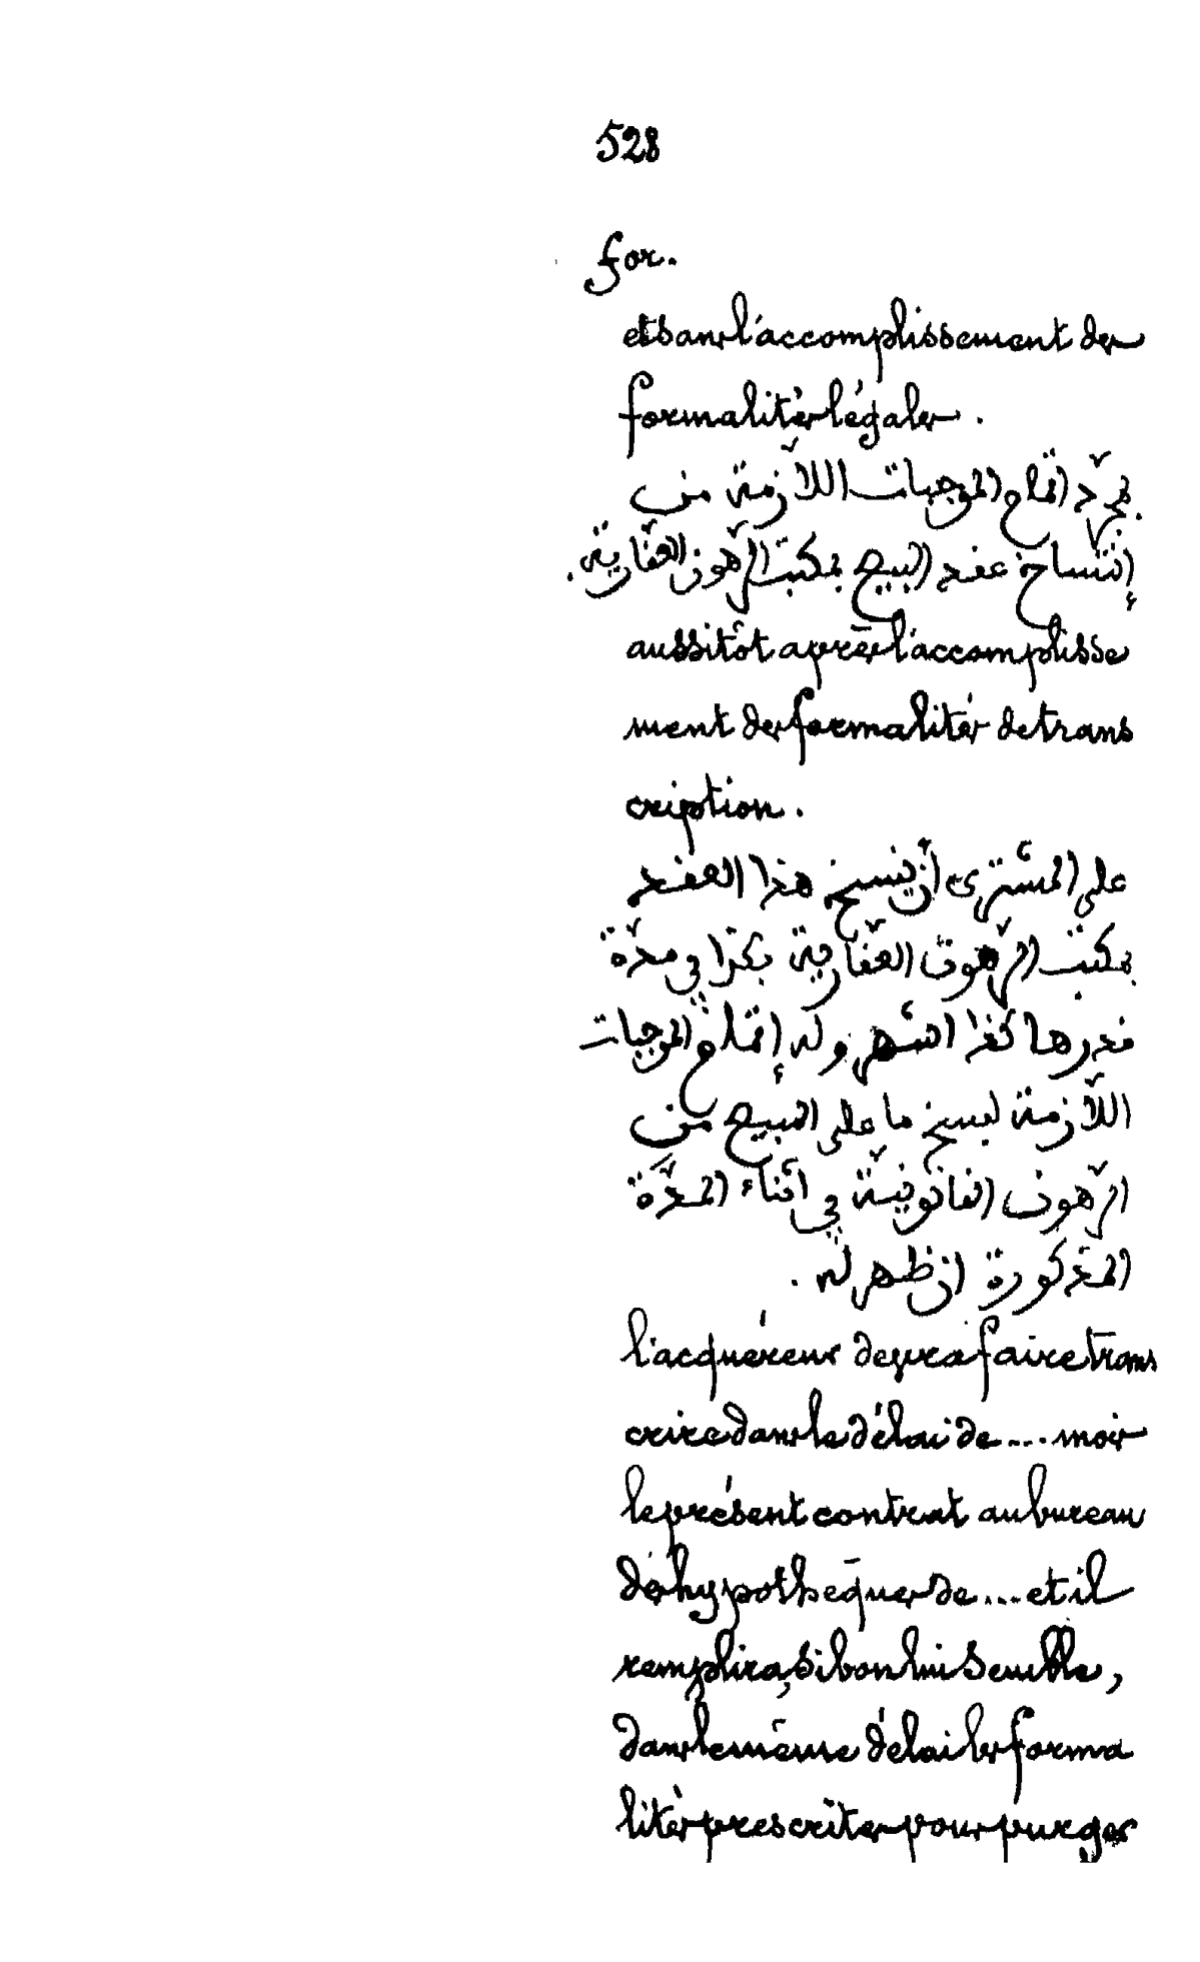 528
for.
et sans l'accomplissement des
formalités légales.
بمجرّد إتمام الموجبات اللاّزمة من
إنتساخ عقد البيع بمكتب الرّهون العقّاريّة.
aussitôt après l'accomplisse
ment des formalités de trans
cription.
على المشترى أن ينسخ هذا العقد
بمكتب الرّهون العقّارية بكذا في مدّة
قدرها كذا اشهر وله إتمام الموجبات
اللاّزمة لفسخ ما على المبيع من
الرّهون القانونيّة في أثناء المدّة
المذكورة ان ظهر له.
l'acquéreur devra faire trans
crire dans le délai de .... mois
le présent contrat au bureau
des hypothèques de .... et il
remplira, si bon lui semble,
dans le même délai les forma
lités prescrites pour purger